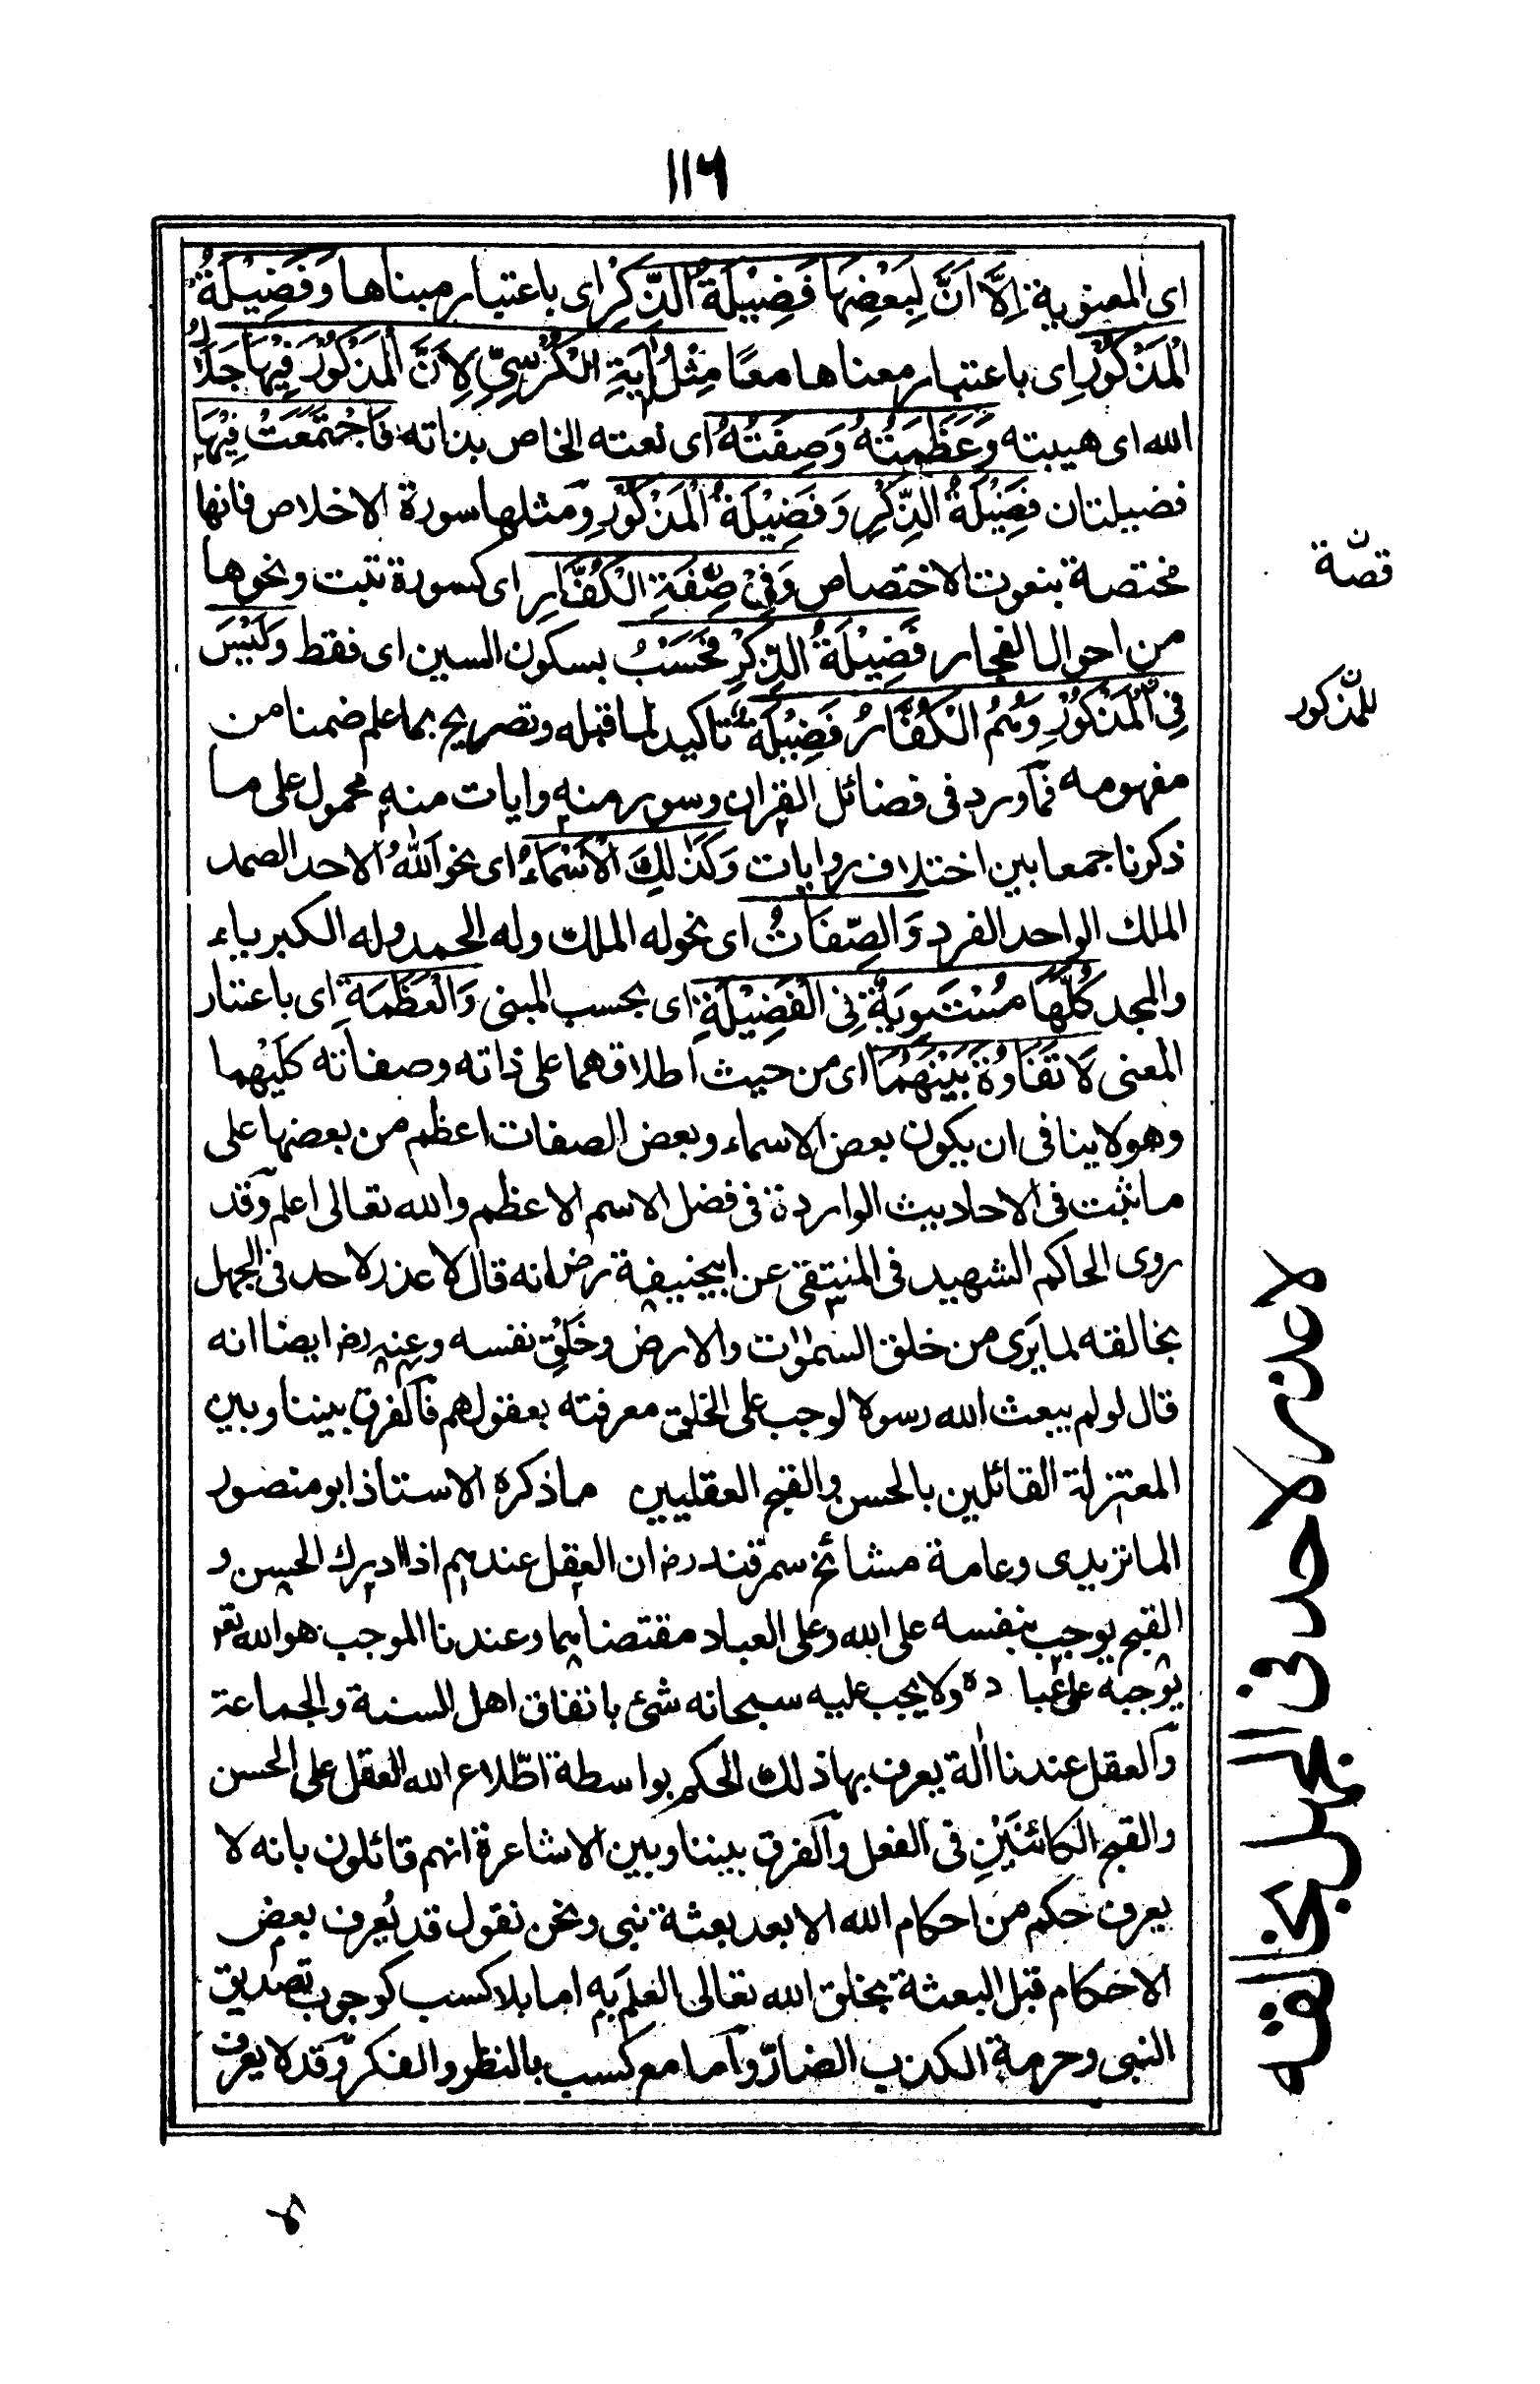 ١١٦
اى المعنوية اِلَّا اَنَّ لِبَعْضِهَا فَضِيْلَةُ الذِّكِرْ اى باعتبار مبناها وَفَضِيْلَةُ
الْمَذْكُوْرِ اى باعتبار معناها معًا مِثْلُ اٰيَةِ الْكُرْسِيِّ لِاَنَّ الْمَذْكُوْرَ فِيْهَا جَلَالُ
الله اى هيبته وَعَظَمَتُهُ وَصِفَتُهُ اى نعته الخاص بذاته فَاجْتَمَعَتْ فِيْهَا
فضيلتان فَضِيْلَةُ الذِّكْرِ وَفَضِيْلَةُ الْمَذْكُوْرِ ومثلها سورة الاخلاص فانها
مختصة بنعوت الاختصاص وَفِيْ صِفَةِ الْكُفَّارِ اى كسورة تبت ونحوها
من احوال الفجار فَضِيْلَةُ الذِّكِرْ فَحَسْبُ بسكون السين اى فقط وَلَيْسَ
فِي الْمَذْكُوْرِ وَهُمُ الْكُفَّارُ فَضِيْلَةٌ تاكيد لما قبله وتصريح بما علم ضمنا من
مفهومه فما ورد فى فضائل القران وسور منه وايات منه محمول على ما
ذكرنا جمعا بين اختلاف روايات وَكَذٰلِكَ الْاَسْمَاءُ اى نحو اَللّٰهُ الاحد الصمد
الملك الواحد الفرد وَالصِّفَاتُ اى نحو له الملك وله الحمد وله الكبرياء
والمجد كُلُّهَا مُسْتَوِيَةٌ فِي الْفَضِيْلَةِ اى بحسب المبنى وَالْعَظَمَةِ اى باعتبار
المعنى لَا تَفَاوُةَ بَيْنَهُمَا اى من حيث اطلاقهما على ذاته وصفاته كليهما
وهو لا ينافى ان يكون بعض الاسماء وبعض الصفات اعظم من بعضها على
ما ثبت فى الاحاديث الواردة فى فضل الاسم الاعظم والله تعالى اعلم وقد
روى الحاكم الشهيد فى المنتقى عن ابيحنيفة رض انه قال لا عذر لاحد فى الجهل
بخالقه لما يَرٰى من خلق السمٰوٰت والارض وخَلْقِ نفسه وعنه رض ايضا انه
قال لو لم يبعث الله رسولا لوجب على الخلق معرفته بعقولهم فالفرق بيننا وبين
المعتزلة القائلين بالحسن والقبح العقليين ما ذكره الاستاذ ابو منصور
الماتزيدى وعامة مشائخ سمرقند رض ان العقل عندهم اذا ادرك الحسن و
القبح يوجب بنفسه على الله وعلى العباد مقتضاهما وعندنا الموجب هو الله تع
يوجبه على عباده ولا يجب عليه سبحانه شئ باتفاق اهل السنة والجماعة
والعقل عندنا اٰلة يعرف بها ذلك الحكم بواسطة اطّلاع الله العقل على الحسن
والقبح الكائنَيْنِ فى الفعل والفرق بيننا وبين الاشاعرة انهم قائلون بانه لا
يعرف حكم من احكام الله الا بعد بعثة نبى ونحن نقول قد يُعرف بعض
الاحكام قبل البعثة بخلق الله تعالى العلم به اما بلا كسب كوجوب تصديق
النبى وحرمة الكذب الضارّ واما مع كسب بالنظر والفكر وقد لا يعرف
قصّة
للمذكور
لا عذر لاحد فى الجهل بخالقه